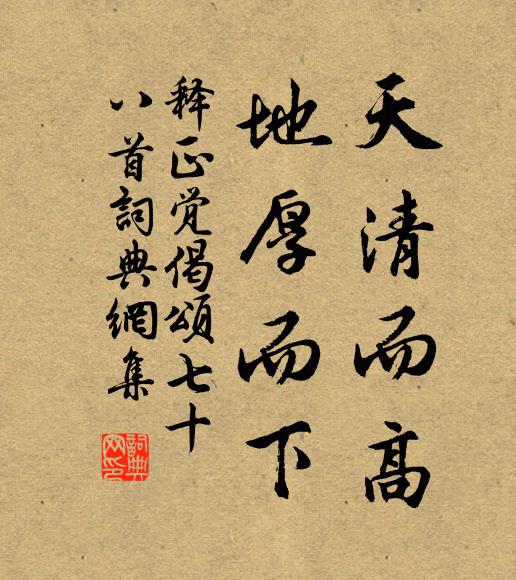 天清而高
地厚而下
释正觉偈颂七十
八首詞典網集
詞典
网印